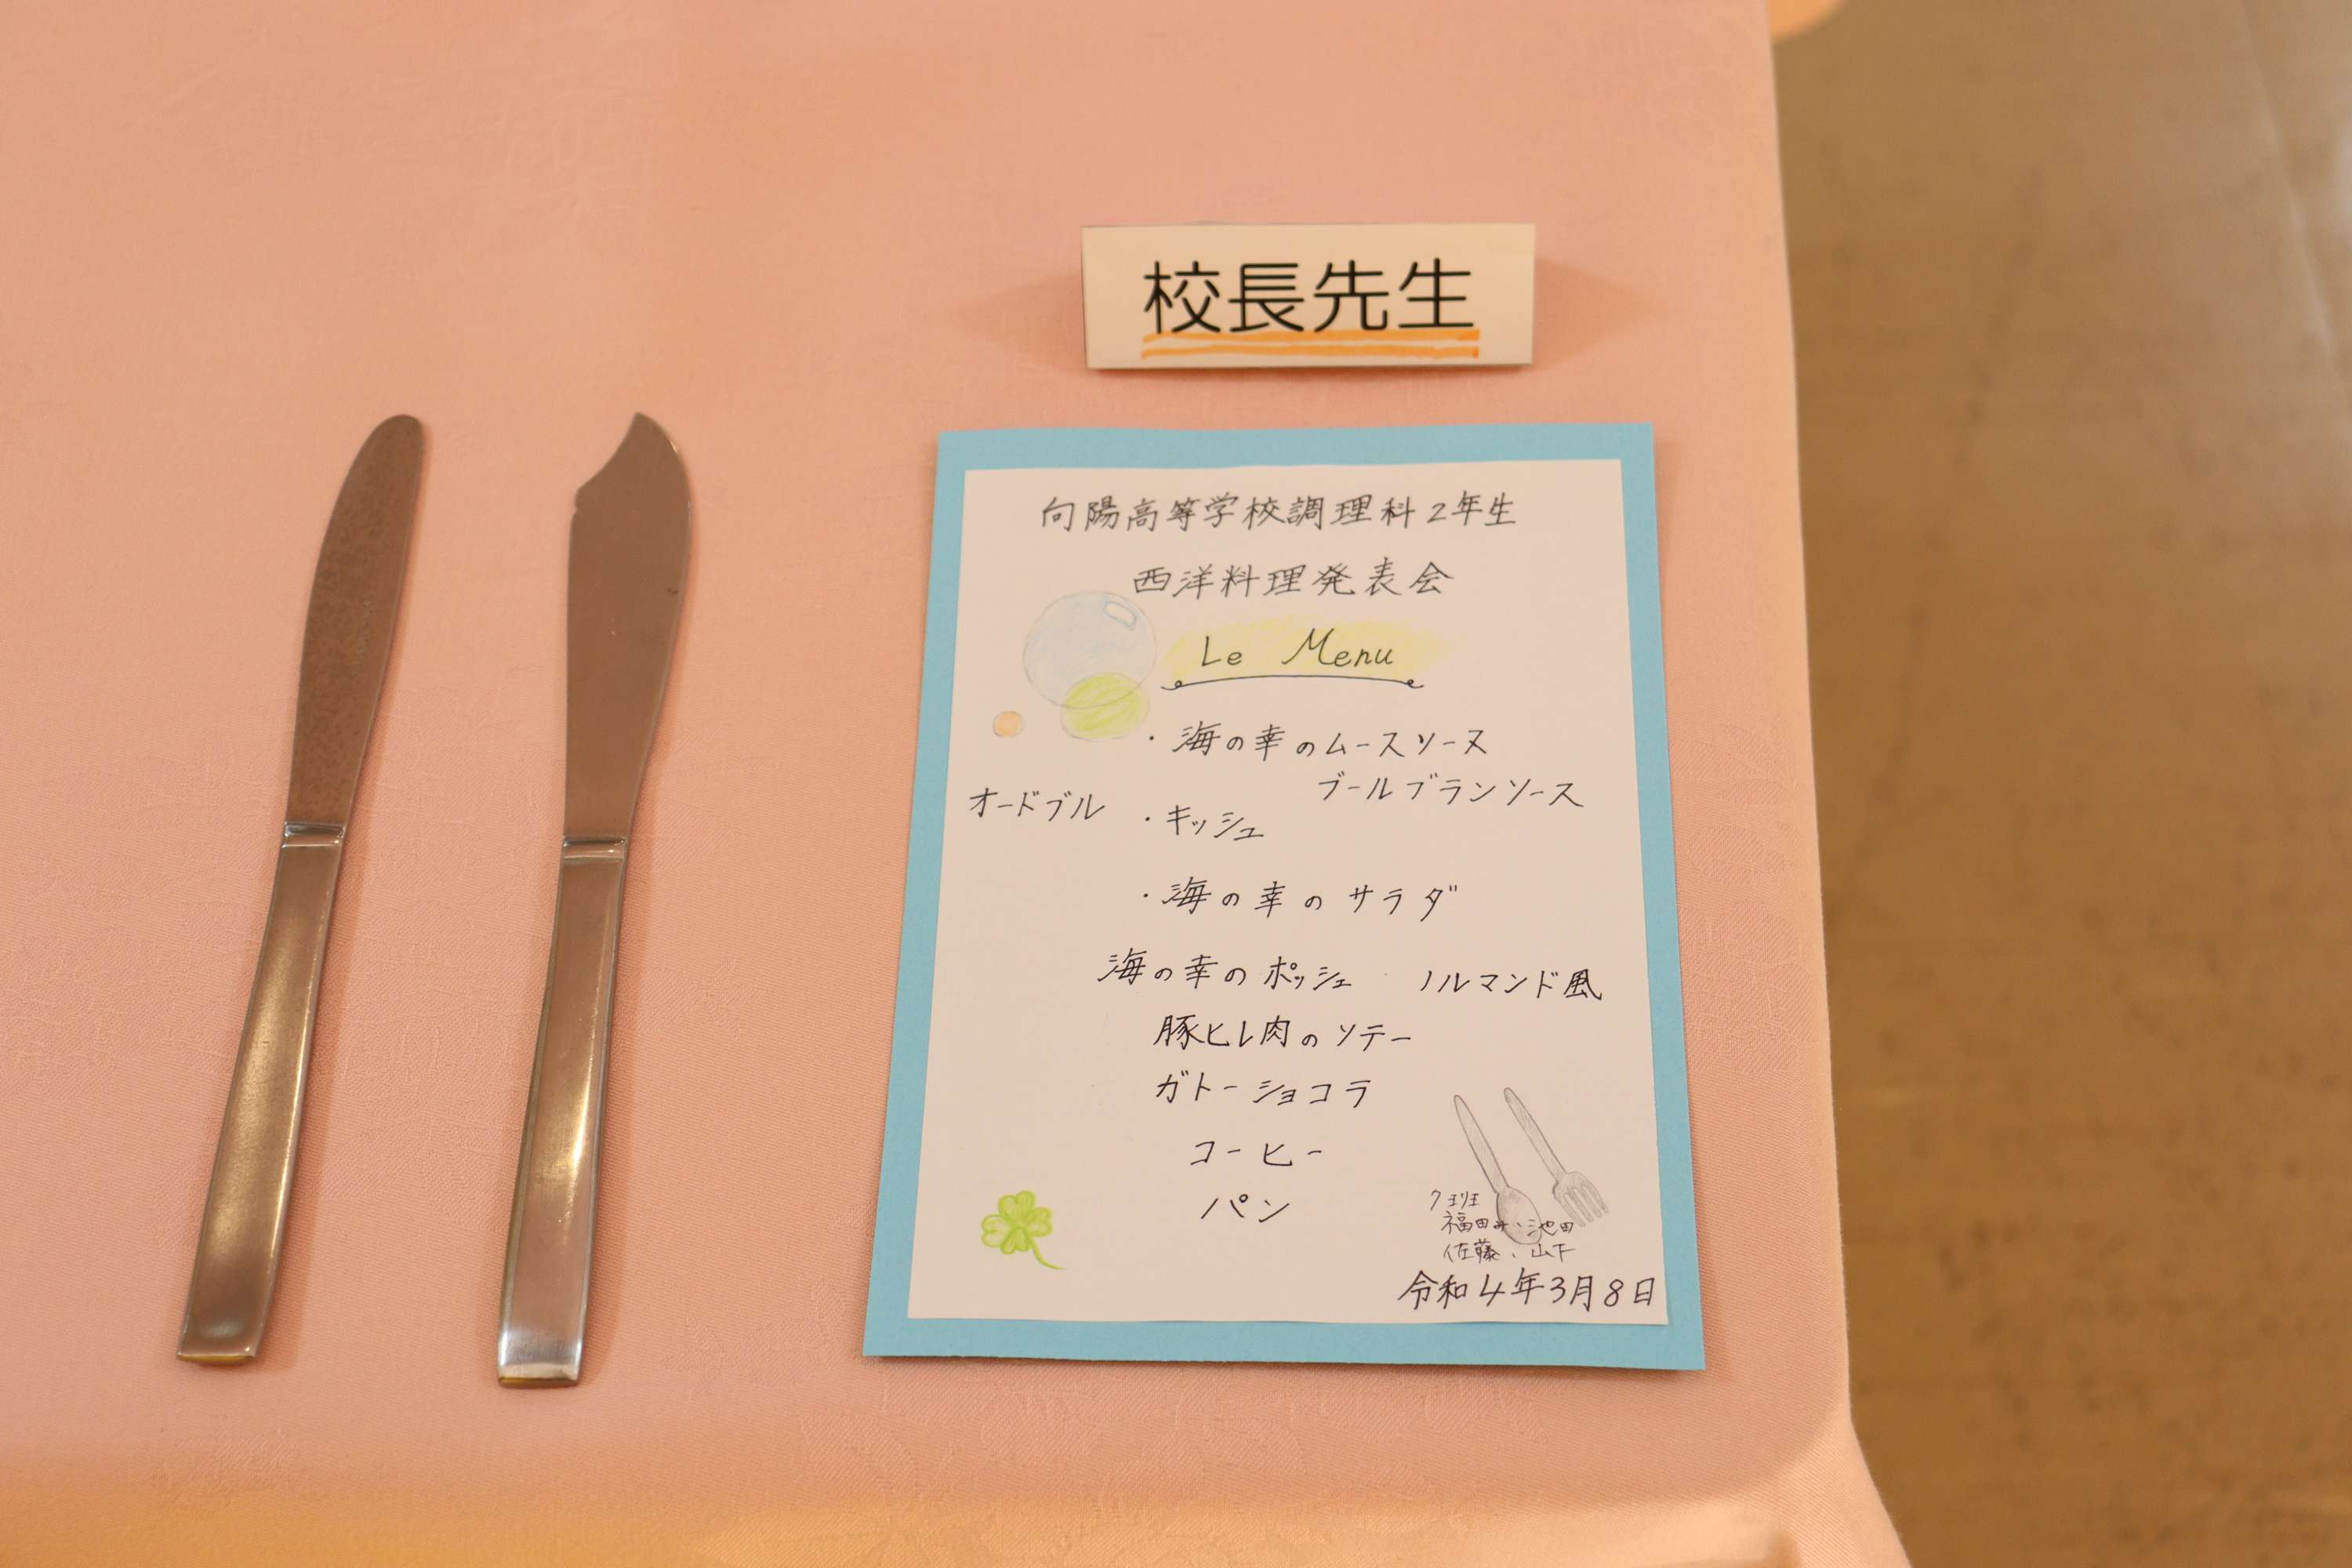 校長先生
向陽高等学校調理科2年生
西洋料理発表会
Le Menu
・海の幸のムースソーヌ
ブールブランソース
オードブル
・キッシュ
・海の幸のサラダ
海の幸のポッシェ ノルマンド風
豚ヒレ肉のソテー
ガトーショコラ
コーヒー
パン
7班
福田み、池田
佐藤、山下
令和4年3月8日